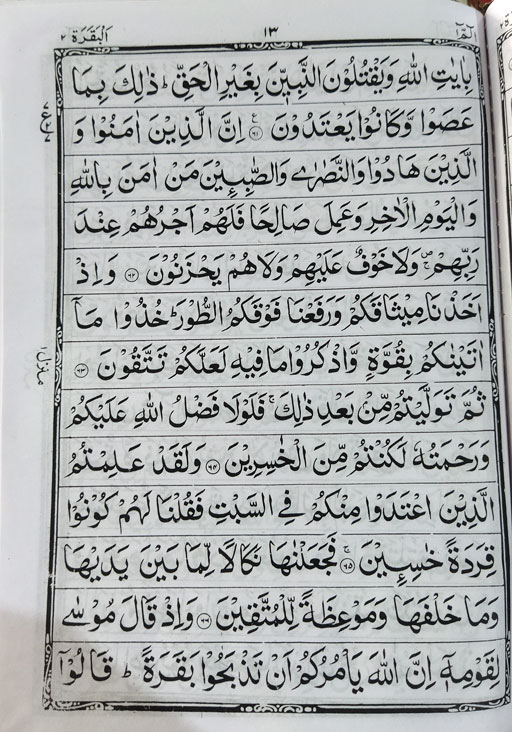 الٓمّٓ ١
١٣
اَلْبَقَرَة ٢
بِاٰيٰتِ اللّٰهِ وَيَقْتُلُوْنَ النَّبِيّٖنَ بِغَيْرِ الْحَقِّ ؕ ذٰلِكَ بِمَا
عَصَوْا وَّكَانُوْا يَعْتَدُوْنَ ﴿۶۱﴾ اِنَّ الَّذِيْنَ اٰمَنُوْا وَ
الَّذِيْنَ هَادُوْا وَالنَّصٰرٰى وَالصّٰبِـِٕيْنَ مَنْ اٰمَنَ بِاللّٰهِ
وَالْيَوْمِ الْاٰخِرِ وَعَمِلَ صَالِحًا فَلَهُمْ اَجْرُهُمْ عِنْدَ
رَبِّهِمْ ۪ۚ وَلَا خَوْفٌ عَلَيْهِمْ وَلَا هُمْ يَحْزَنُوْنَ ﴿۶۲﴾ وَاِذْ
اَخَذْنَا مِيْثَاقَكُمْ وَرَفَعْنَا فَوْقَكُمُ الطُّوْرَ ؕ خُذُوْا مَاۤ
اٰتَيْنٰكُمْ بِقُوَّةٍ وَّاذْكُرُوْا مَا فِيْهِ لَعَلَّكُمْ تَتَّقُوْنَ ﴿۶۳﴾
ثُمَّ تَوَلَّيْتُمْ مِّنْۢ بَعْدِ ذٰلِكَ ۚ فَلَوْلَا فَضْلُ اللّٰهِ عَلَيْكُمْ
وَرَحْمَتُهٗ لَكُنْتُمْ مِّنَ الْخٰسِرِيْنَ ﴿۶۴﴾ وَلَقَدْ عَلِمْتُمُ
الَّذِيْنَ اعْتَدَوْا مِنْكُمْ فِى السَّبْتِ فَقُلْنَا لَهُمْ كُوْنُوْا
قِرَدَةً خٰسِـِٕيْنَ ۚ﴿۶۵﴾ فَجَعَلْنٰهَا نَكَالًا لِّمَا بَيْنَ يَدَيْهَا
وَمَا خَلْفَهَا وَمَوْعِظَةً لِّلْمُتَّقِيْنَ ﴿۶۶﴾ وَاِذْ قَالَ مُوْسٰى
لِقَوْمِهٖۤ اِنَّ اللّٰهَ يَاْمُرُكُمْ اَنْ تَذْبَحُوْا بَقَرَةً ؕ قَالُوْۤا
منزل ١